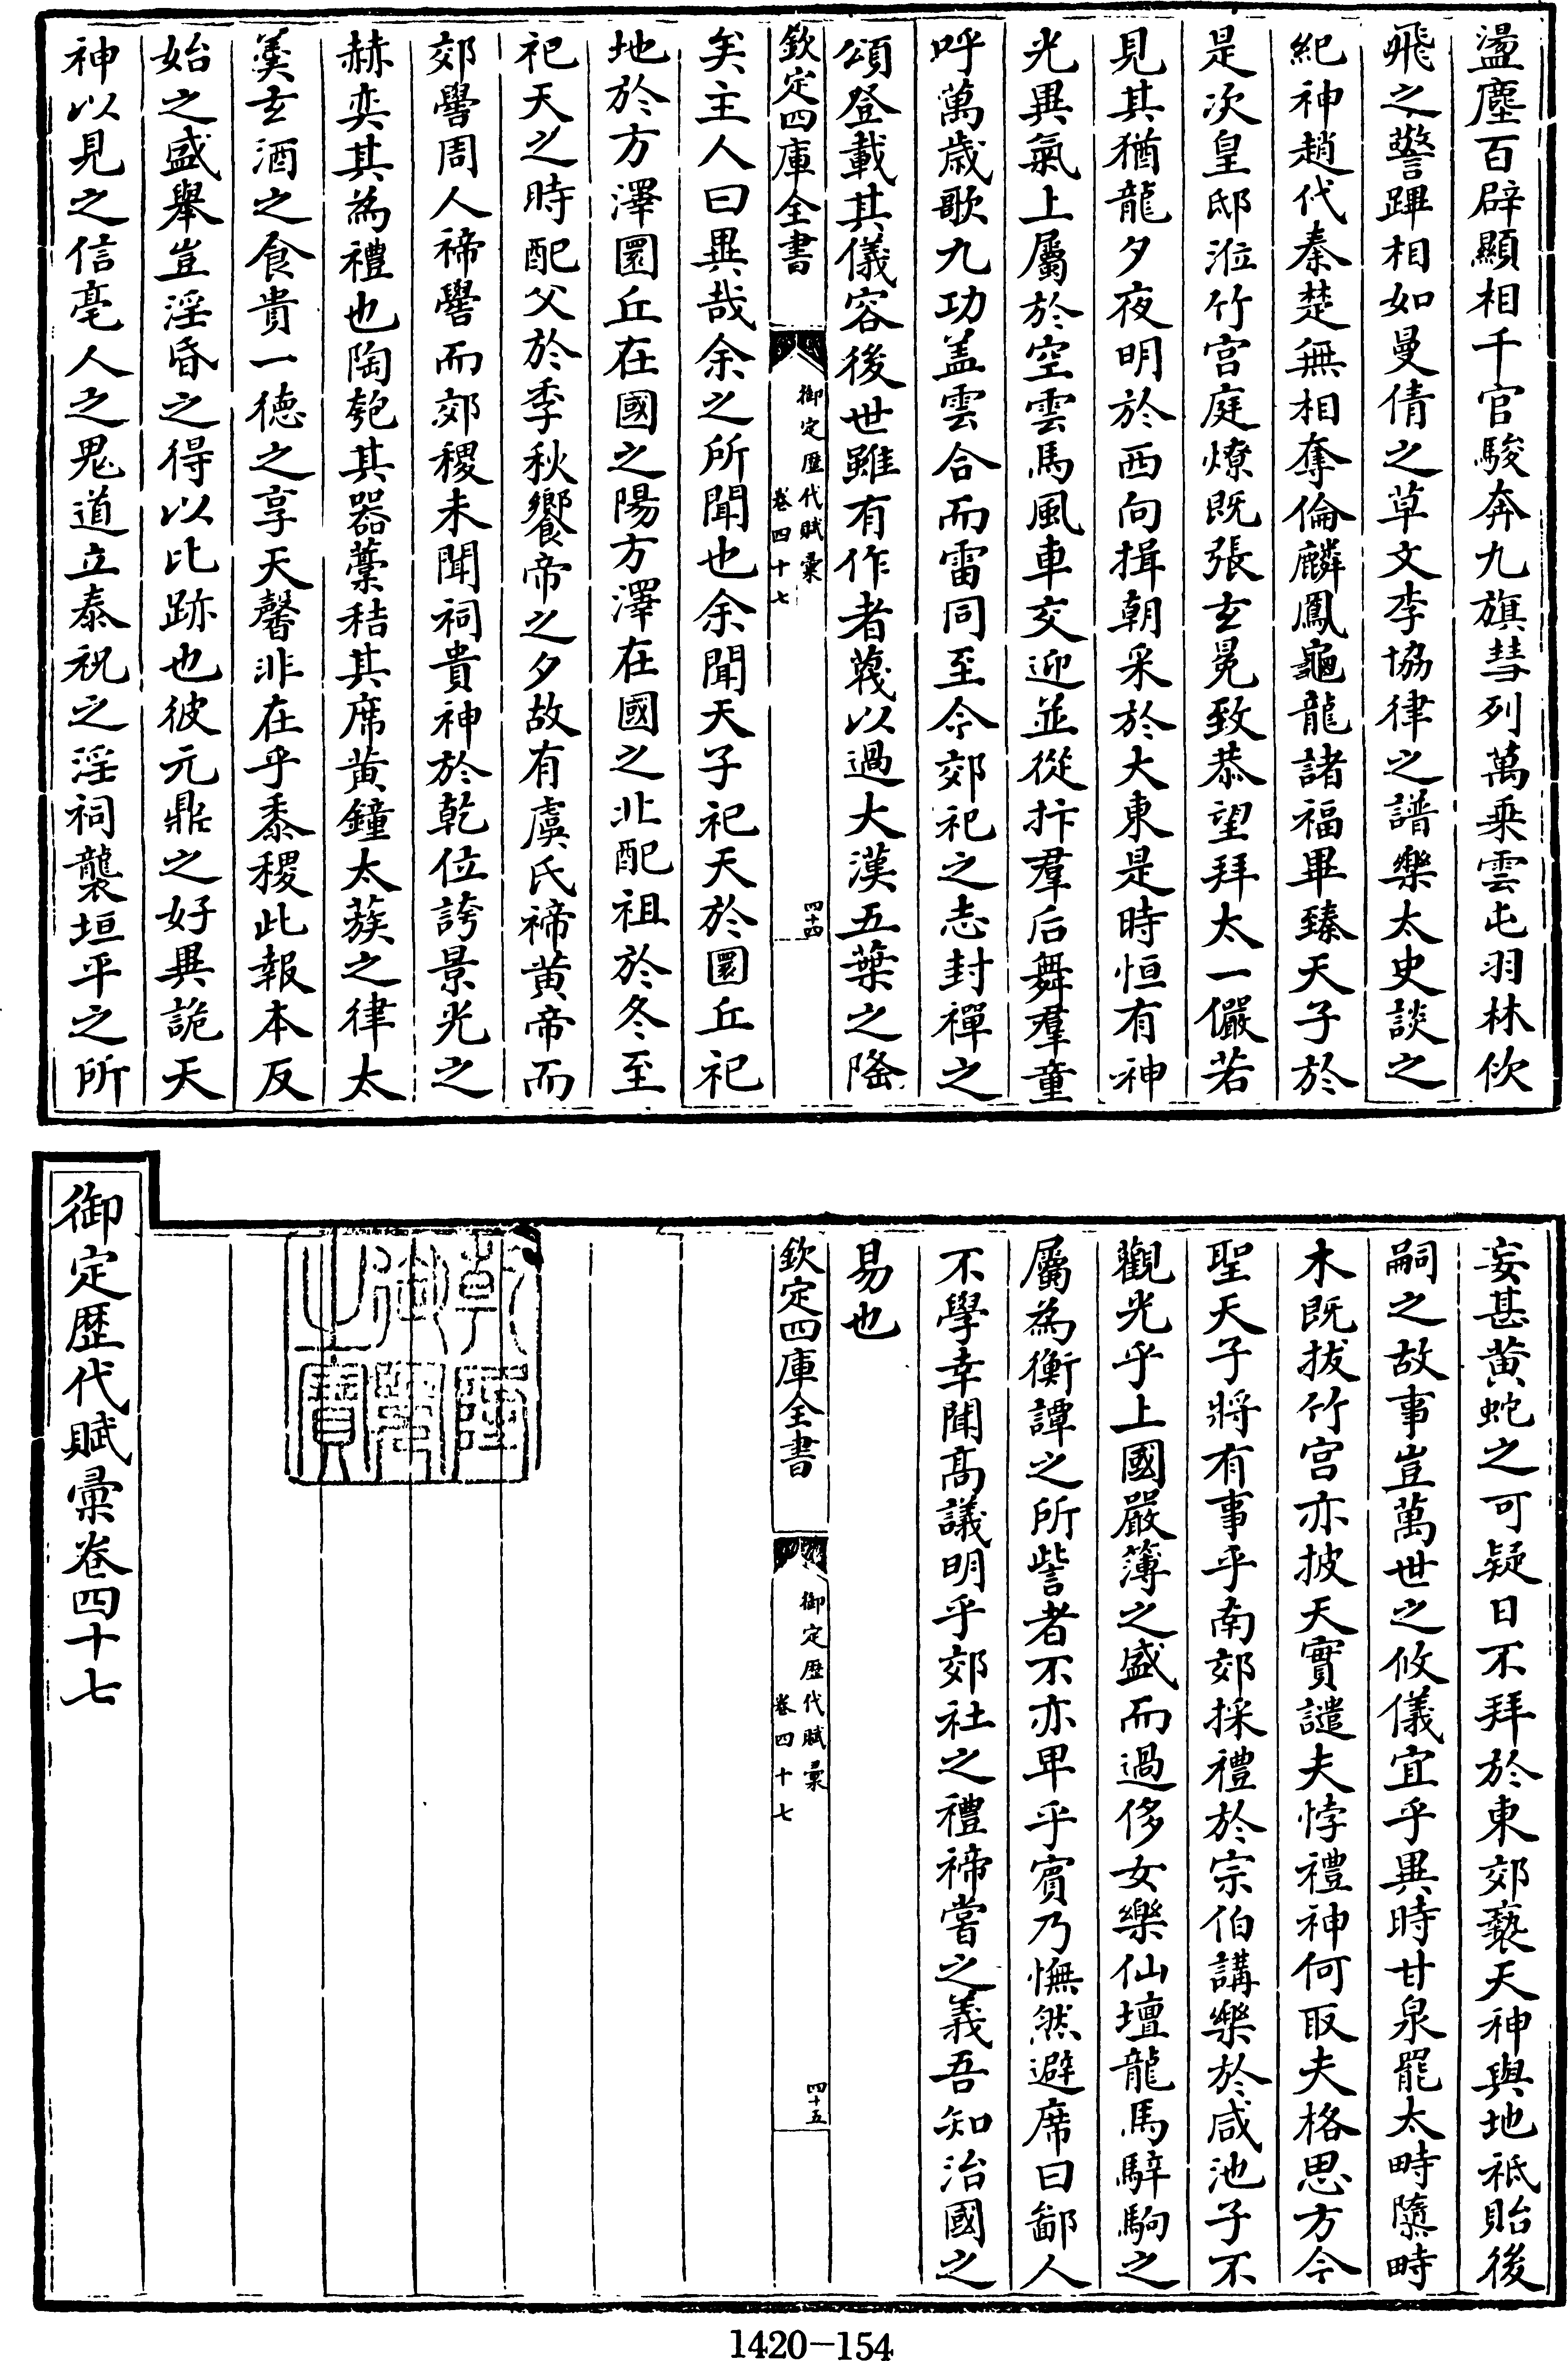 盪塵百辟顯相千官駿奔九旗彗列萬乘雲屯羽林佽
飛之警蹕相如曼倩之草文李協律之譜樂太史談之
紀神趙代秦楚無相奪倫麟鳳龜龍諸福畢臻天子於
是次皇邸涖竹宫庭燎既張玄冕致恭望拜太一儼若
見其猶龍夕夜明於西向揖朝采於大東是時恒有神
光異氣上屬於空雲馬風車交迎並從抃羣后舞羣童
呼萬歲歌九功盖雲合而雷同至今郊祀之志封禪之
頌登載其儀容後世雖有作者蔑以過大漢五葉之隆
欽定四庫全書
御定歴代賦彚
卷四十七
四十四
矣主人曰異哉余之所聞也余聞天子祀天於圜丘祀
地於方澤圜丘在國之陽方澤在國之北配祖於冬至
祀天之時配父於季秋饗帝之夕故有虞氏禘黄帝而
郊嚳周人禘嚳而郊稷未聞祠貴神於乾位誇景光之
赫奕其為禮也陶匏其器藁秸其席黄鐘太蔟之律太
羮玄酒之食貴一徳之享天馨非在乎黍稷此報本反
始之盛舉豈淫昏之得以比跡也彼元鼎之好異詭天
神以見之信亳人之鬼道立泰祝之淫祠襲垣平之所
妄甚黄蛇之可疑日不拜於東郊褻天神與地祗貽後
嗣之故事豈萬世之攸儀宜乎異時甘泉罷太畤隳畤
木既拔竹宫亦披天實譴夫悖禮神何取夫格思方今
聖天子將有事乎南郊採禮於宗伯講樂於咸池子不
觀光乎上國嚴簿之盛而過侈女樂仙壇龍馬騂駒之
屬為衡譚之所訾者不亦卑乎賓乃憮然避席曰鄙人
不學幸聞髙議明乎郊社之禮禘嘗之義吾知治國之
易也
欽定四庫全書
御定歴代賦彚
卷四十七
四十五
乾隆御覽之寶
御定歴代賦彚卷四十七
1420-154